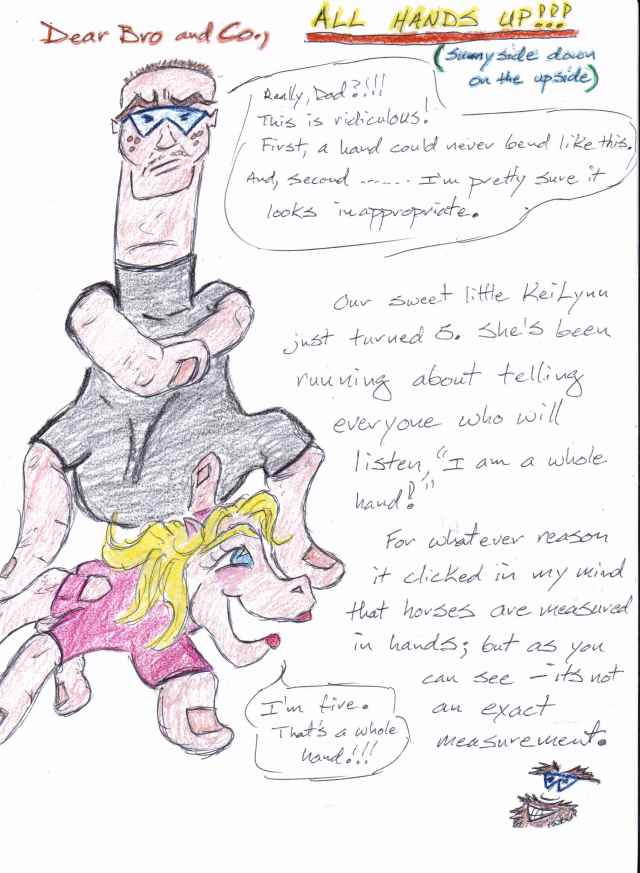 Dear Bro and Co.,
ALL HANDS UP!!!
(sunny side down
on the upside)
Really, Dad?!!!
This is ridiculous!
First, a hand could never bend like this.
And, second ....... I'm pretty sure it
looks inappropriate.
Our sweet little KeiLynn
just turned 5. She's been
running about telling
everyone who will
listen, "I am a whole
hand!"
For whatever reason
it clicked in my mind
that horses are measured
in hands; but as you
can see - it's not
an exact
measurement.
I'm five.
That's a whole
hand!!!